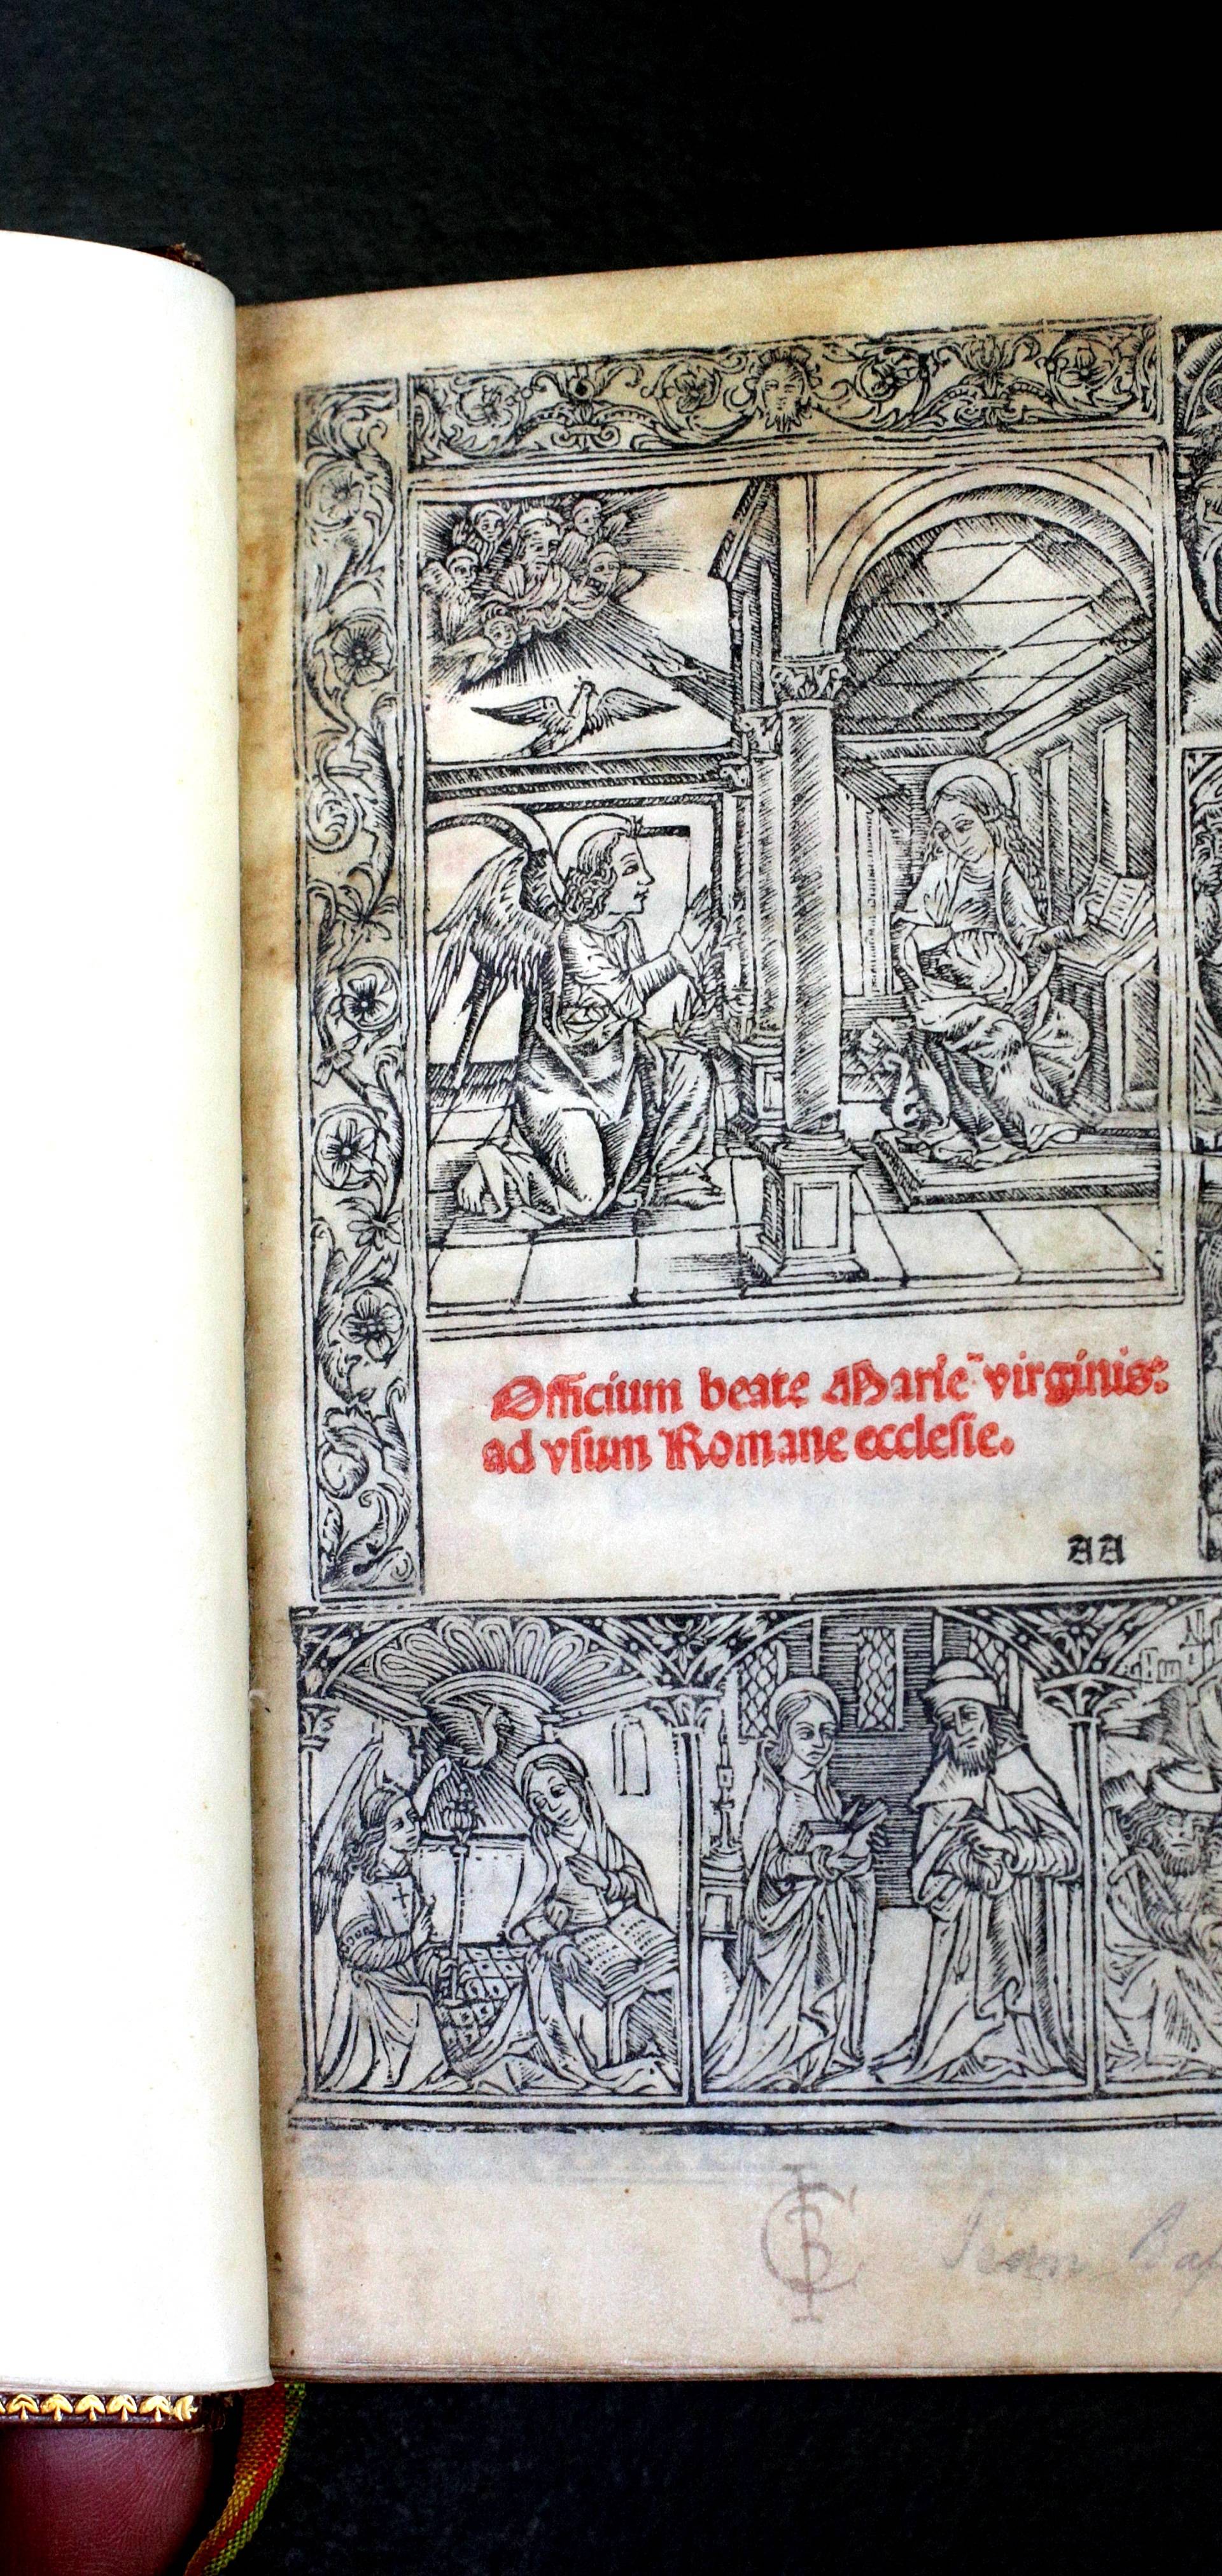 Officium beate Marie virginis:
ad vsum Romane ecclesie.
AA